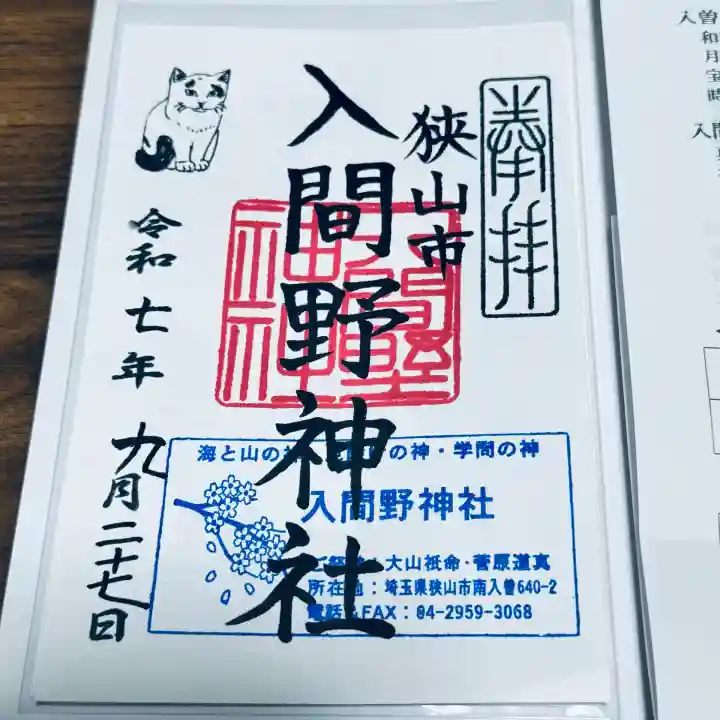 奉拝
狭山市
入間野神社
令和七年 九月二十七日
海と山の
の神・学問の神
入間野神社
大山祇命・菅原道真
所在地：埼玉県狭山市南入曽640-2
電話・FAX：04-2959-3068
入曽
和
月
宝
時
入間